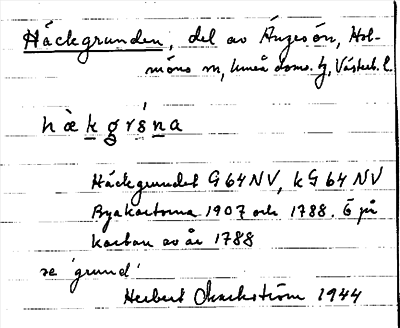 Häckgrunden, del av Ängesön, Hol-
möns sn, Umeå doms. tg, Västerb. l.
hækgrśna
Häckgrundet G 64 NV, kG 64 NV
Byakartorna 1907 och 1788. G på
kartan av år 1788
se 'grund'
Herbert Markström 1944